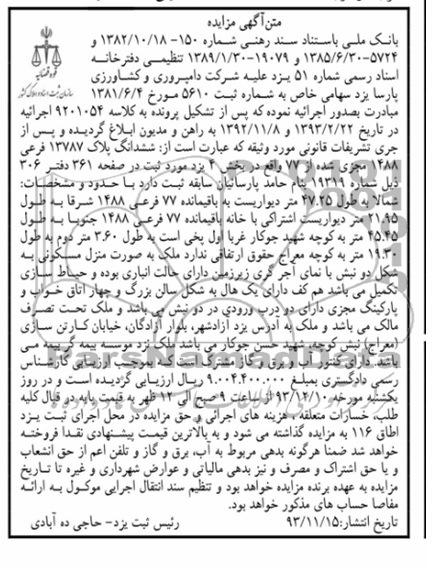 متن آگهی مزایده
بانک ملی باستناد سند رهنی شماره ۱۵۰- ۱۳۸۲/۱۰/۱۸ و
۵۷۲۴-۱۳۸۵/۶/۳۰ و ۱۹۰۷۹-۱۳۸۹/۱/۳۰ تنظیمی دفترخانه
اسناد رسمی شماره ۵۱ یزد علیه شرکت دامپروری و کشاورزی
پارسا یزد سهامی خاص به شماره ثبت ۵۶۱۰ مورخ ۱۳۸۱/۶/۴
مبادرت بصدور اجرائیه نموده که پس از تشکیل پرونده به کلاسه ۹۲۰۱۰۵۴ اجرائیه
در تاریخ ۱۳۹۳/۲/۲۲ و ۱۳۹۲/۱۱/۸ به راهن و مدیون ابلاغ گردیده و پس از
جری تشریفات قانونی مورد وثیقه که عبارت است از: ششدانگ پلاک ۱۳۷۸۷ فرعی
۱۴۸۸ مجزی شده از ۷۷ واقع در بخش ۴ یزد مورد ثبت در صفحه ۳۶۱ دفتر ۳۰۶
ذیل شماره ۱۱۳۱۹ بنام حامد پارسائیان سابقه ثبت دارد با حدود و مشخصات:
شمالا به طول ۴۷.۲۵ متر دیواریست به باقیمانده ۷۷ فرعی ۱۴۸۸ شرقا به طول
۲۱.۹۵ متر دیواریست اشتراکی با خانه باقیمانده ۷۷ فرعی ۱۴۸۸ جنوبا به طول
۴۵.۴۵ متر به کوچه شهید جوکار غربا اول پخی است به طول ۳.۶۰ متر دوم به طول
۱۹.۳۰ متر به کوچه معراج حقوق ارتفاقی ندارد ملک به صورت منزل مسکونی به
شکل دو نبش با نمای آجر گری زیرزمین دارای حالت انباری بوده و حیاط سازی
تکمیل می باشد هم کف دارای یک هال به شکل سالن بزرگ و چهار اتاق خواب و
پارکینگ مجزی دارای دو درب ورودی در دو نبش می باشد و ملک تحت تصرف
مالک می باشد و ملک به آدرس یزد آزادشهر، بلوار آزادگان، خیابان کارتن سازی
(معراج) نبش کوچه شهید حسن جوکار می باشد ملک نزد موسسه بیمه گر بیمه می
باشد. دارای کنتور آب و برق و گاز مشترک است که بموجب ارزیابی کارشناس
رسمی دادگستری بمبلغ ۹.۰۰۴.۴۰۰.۰۰۰ ریال ارزیابی گردیده است و در روز
یکشنبه مورخه ۹۳/۱۲/۱۰ از ساعت ۹ صبح الی ۱۲ ظهر به قیمت پایه در قبال کلیه
طلب، خسارات متعلقه، هزینه های اجرائی و حق مزایده در محل اجرای ثبت یزد
اطاق ۱۱۶ به مزایده گذاشته می شود و به بالاترین قیمت پیشنهادی نقدا فروخته
خواهد شد ضمنا هرگونه بدهی مربوط به آب، برق و گاز و تلفن اعم از حق انشعاب
و یا حق اشتراک و مصرف و نیز بدهی مالیاتی و عوارض شهرداری و غیره تا تاریخ
مزایده به عهده برنده مزایده خواهد بود و تنظیم سند انتقال اجرایی موکول به ارائه
مفاصا حساب های مذکور خواهد بود.
تاریخ انتشار: ۹۳/۱۱/۱۵
رئیس ثبت یزد- حاجی ده آبادی
قوه قضائیه
سازمان ثبت اسناد و املاک کشور
ParsNamadData